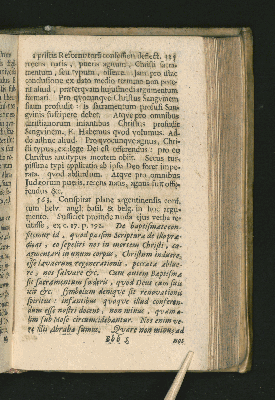 recens natis, pueris agnum, Christi sacra-
mentum, seu typum, offerre. Jam pro hac
conclusione ex dato medio termino non pote-
rit aliud, præterquam hujusmodi argumentum
formari. Pro quocunque Christus Sanguinem
suum profudit: is sacramentum profusi San-
guinis suscipere debet. Atque pro omnibus
christianorum infantibus Christus profudit
Sanguinem. F. Habemus quod volumus. Ad-
do adhuc aliud. Pro quocunque agnus, Chri-
sti typus, ex lege Dei est offerendus: pro eo
Christus antitypus mortem obiit. Secus tur-
pissima typi applicatio ab ipso Deo foret impe-
rata. quod absurdum. Atque pro omnibus
Judæorum pueris, recens natis, agnus fuit offe-
rendus &c.
563. Conspirat plane argentinensis conf.
cum helv. angl. basil. & belg. in hoc argu-
mento. Sufficiet proinde nuda ejus verba re-
tulisse, ex c. 17. p. 192. De baptismate con-
fitemur id, quod passim Scriptura de illo præ-
dicat, eo sepeliri nos in mortem Christi, co-
agmentari in unum corpus, Christum induere,
esse lavacrum regenerationis, peccata ablue-
re, nos salvare &c. Cum autem Baptisma
sit sacramentum fœderis, quod Deus cum suis
init &c. symbolum denique sit renovationis
Spiritus: infantibus quoque illud conferen-
dum esse nostri docent, non minus, quam o-
lim sub Mose circumcidebantur. Nos enim ve-
re filii Abrahæ sumus. Quare non minus ad
nos